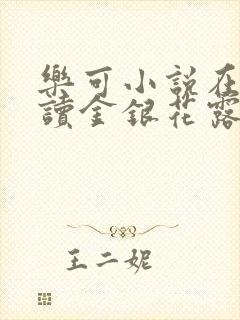 樂可小說在
讀金銀花露
王二妮